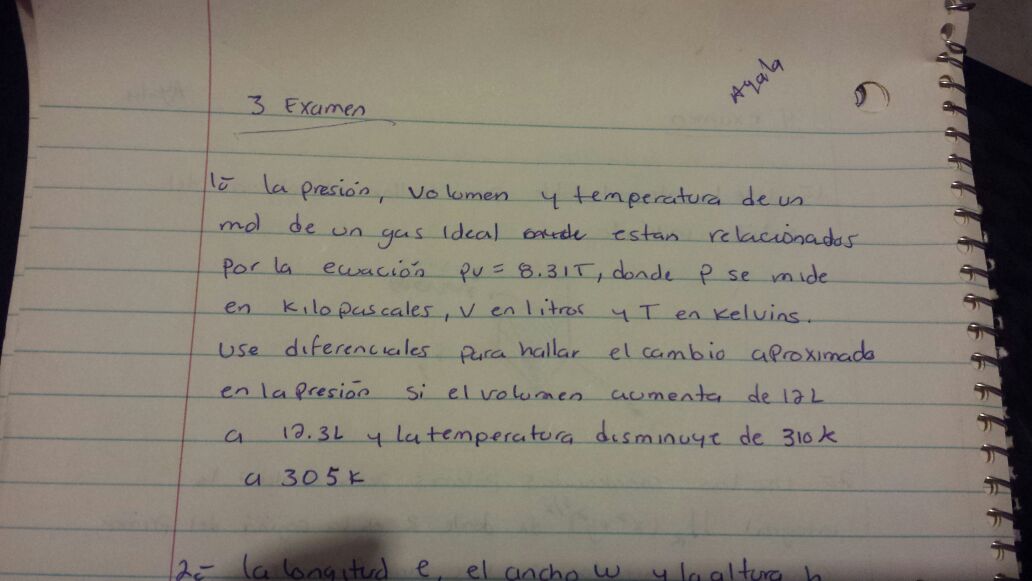 Ayala
3 Examen
1º- la presión, volumen y temperatura de un
mol de un gas ideal estan relacionados
por la ecuación PV = 8.31T, donde P se mide
en kilopascales, V en litros y T en kelvins.
Use diferenciales para hallar el cambio aproximado
en la presión si el volumen aumenta de 12L
a 12.3L y la temperatura disminuye de 310k
a 305k
2º- la longitud e, el ancho w y la altura h